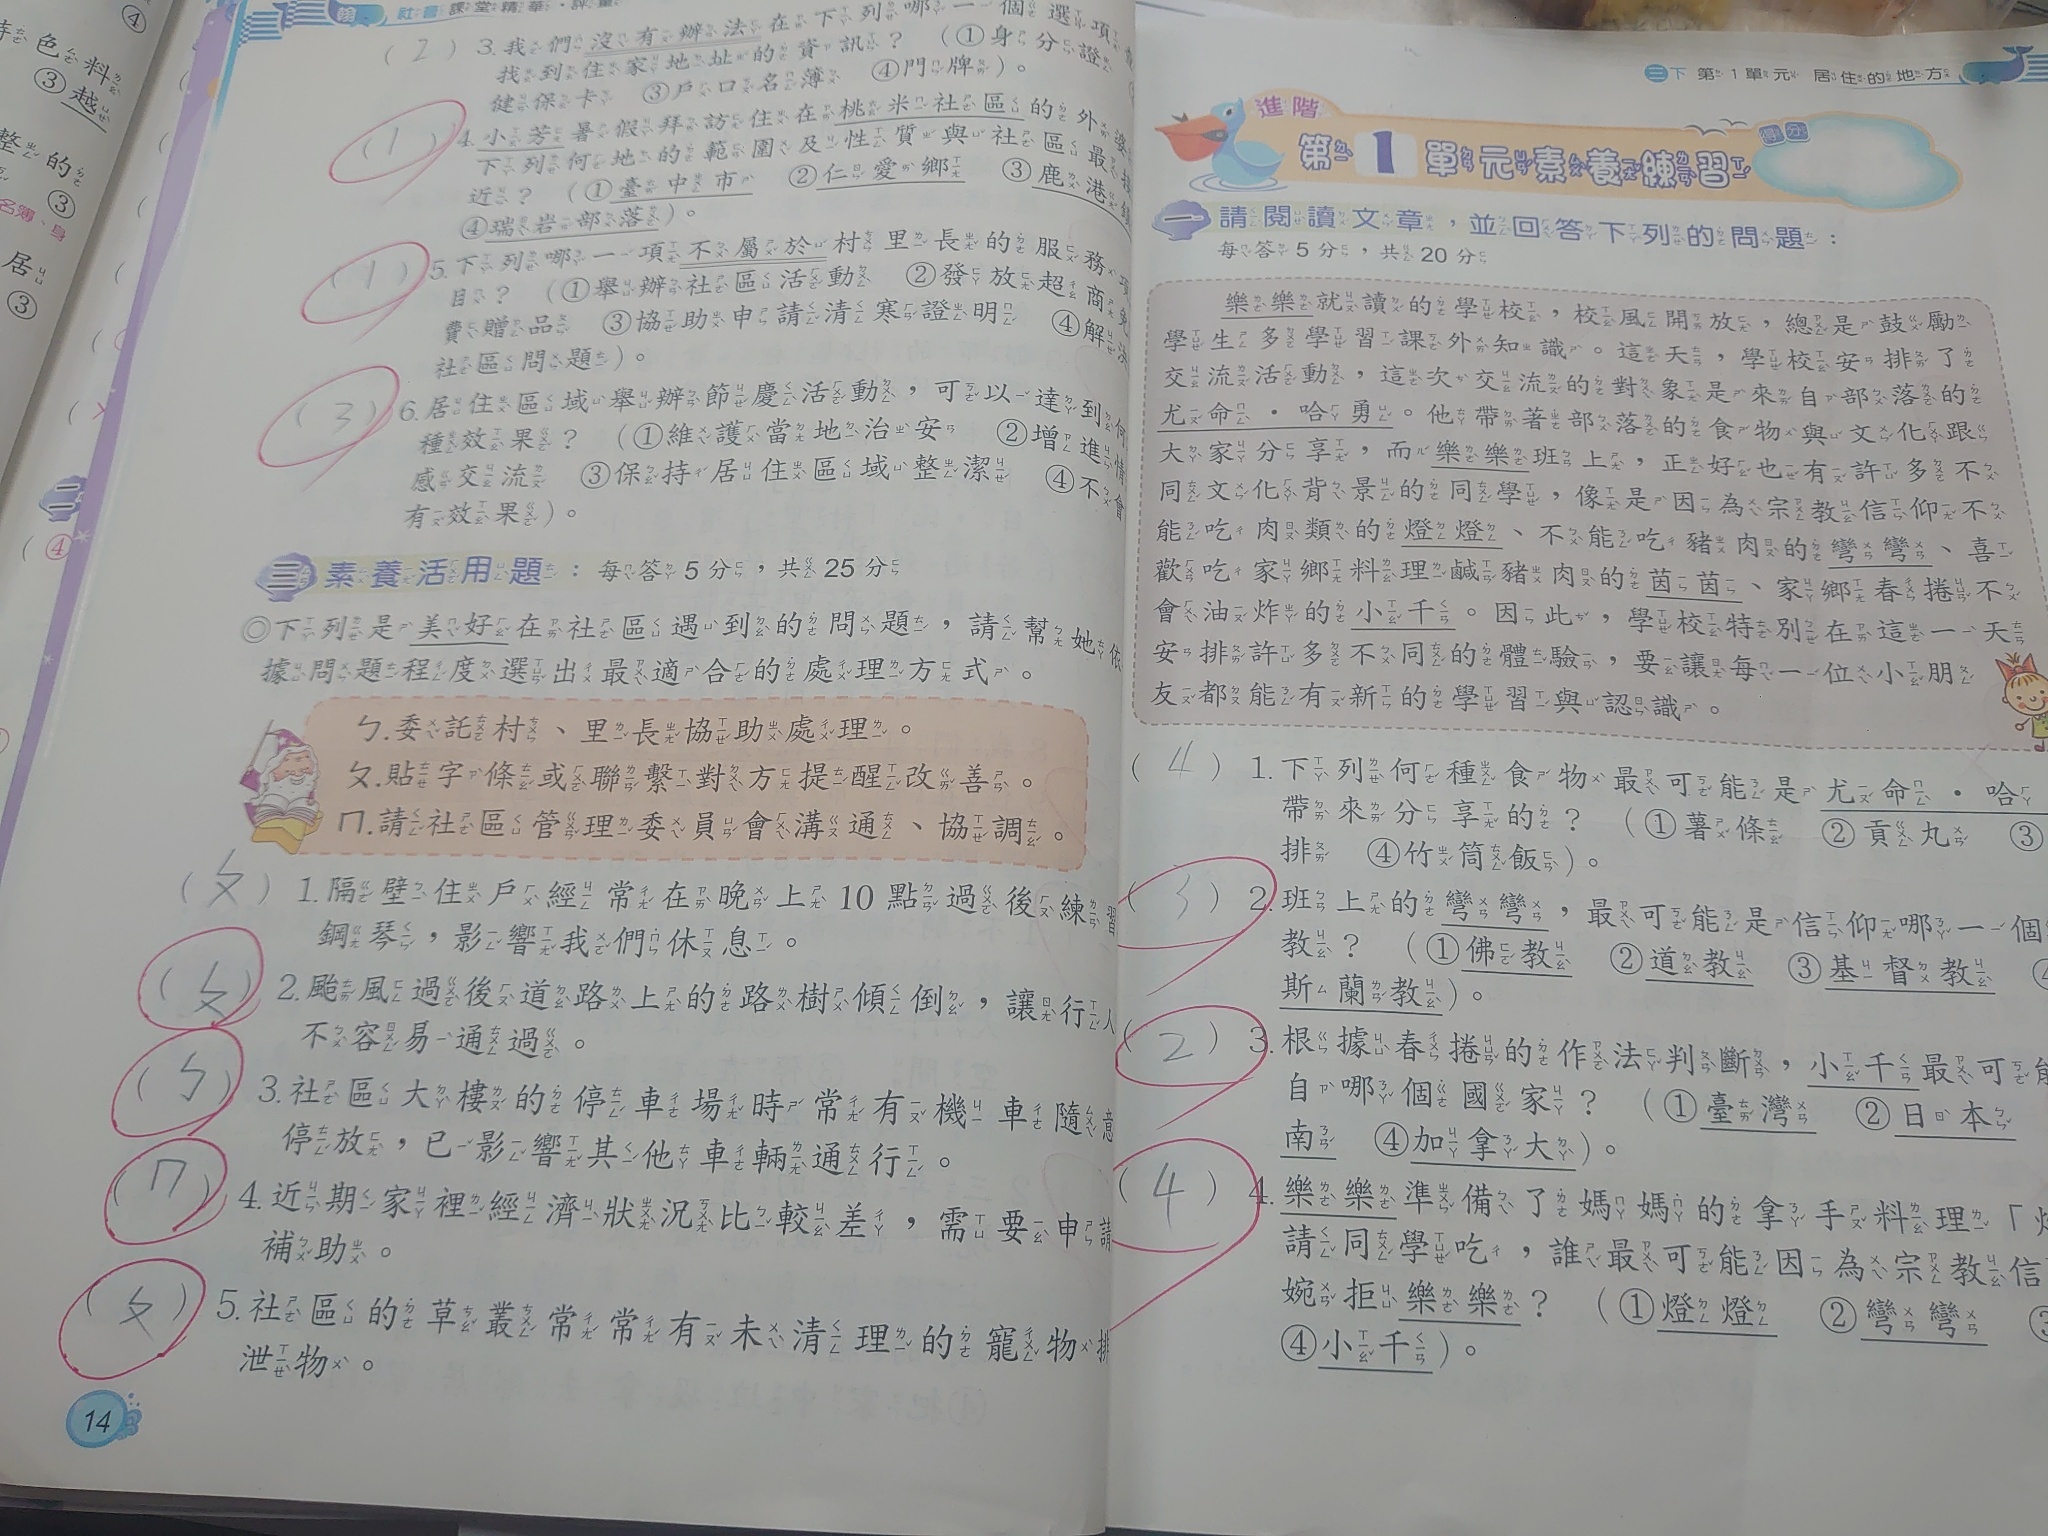 ④
色料
③越
整的
③
名簿、身
居
③
二
④
社會課堂精華‧評量
(2) 3.我們沒有辦法在下列哪一個選項
找到住家地址的資訊？ (①身分證
健保卡 ③戶口名簿 ④門牌)。
(1) 4.小芳暑假拜訪住在桃米社區的外婆
下列何地的範圍及性質與社區最接
近？ (①臺中市 ②仁愛鄉 ③鹿港鎮
④瑞岩部落)。
(1) 5.下列哪一項不屬於村里長的服務項
目？ (①舉辦社區活動 ②發放超商免
費贈品 ③協助申請清寒證明 ④解決
社區問題)。
(3) 6.居住區域舉辦節慶活動，可以達到何
種效果？ (①維護當地治安 ②增進情
感交流 ③保持居住區域整潔 ④不會
有效果)。
三 素養活用題：每答5分，共25分
◎下列是美好在社區遇到的問題，請幫她依
據問題程度選出最適合的處理方式。
ㄅ.委託村、里長協助處理。
ㄆ.貼字條或聯繫對方提醒改善。
ㄇ.請社區管理委員會溝通、協調。
(ㄆ) 1.隔壁住戶經常在晚上10點過後練習
鋼琴，影響我們休息。
(ㄆ) 2.颱風過後道路上的路樹傾倒，讓行人
不容易通過。
(ㄅ) 3.社區大樓的停車場時常有機車隨意
停放，已影響其他車輛通行。
(ㄇ) 4.近期家裡經濟狀況比較差，需要申請
補助。
(ㄆ) 5.社區的草叢常常有未清理的寵物排
泄物。
14
三下 第1單元 居住的地方
進階
第1單元素養練習
得分
一 請閱讀文章，並回答下列的問題：
每答5分，共20分
樂樂就讀的學校，校風開放，總是鼓勵
學生多學習課外知識。這天，學校安排了
交流活動，這次交流的對象是來自部落的
尤命‧哈勇。他帶著部落的食物與文化跟
大家分享，而樂樂班上，正好也有許多不
同文化背景的同學，像是因為宗教信仰不
能吃肉類的燈燈、不能吃豬肉的彎彎、喜
歡吃家鄉料理鹹豬肉的茵茵、家鄉春捲不
會油炸的小千。因此，學校特別在這一天
安排許多不同的體驗，要讓每一位小朋
友都能有新的學習與認識。
(4) 1.下列何種食物最可能是尤命‧哈
帶來分享的？ (①薯條 ②貢丸 ③
排 ④竹筒飯)。
(3) 2.班上的彎彎，最可能是信仰哪一個
教？ (①佛教 ②道教 ③基督教 ④
斯蘭教)。
(2) 3.根據春捲的作法判斷，小千最可能
自哪個國家？ (①臺灣 ②日本
南 ④加拿大)。
(4) 4.樂樂準備了媽媽的拿手料理「炸
請同學吃，誰最可能因為宗教信
婉拒樂樂？ (①燈燈 ②彎彎 ③
④小千)。